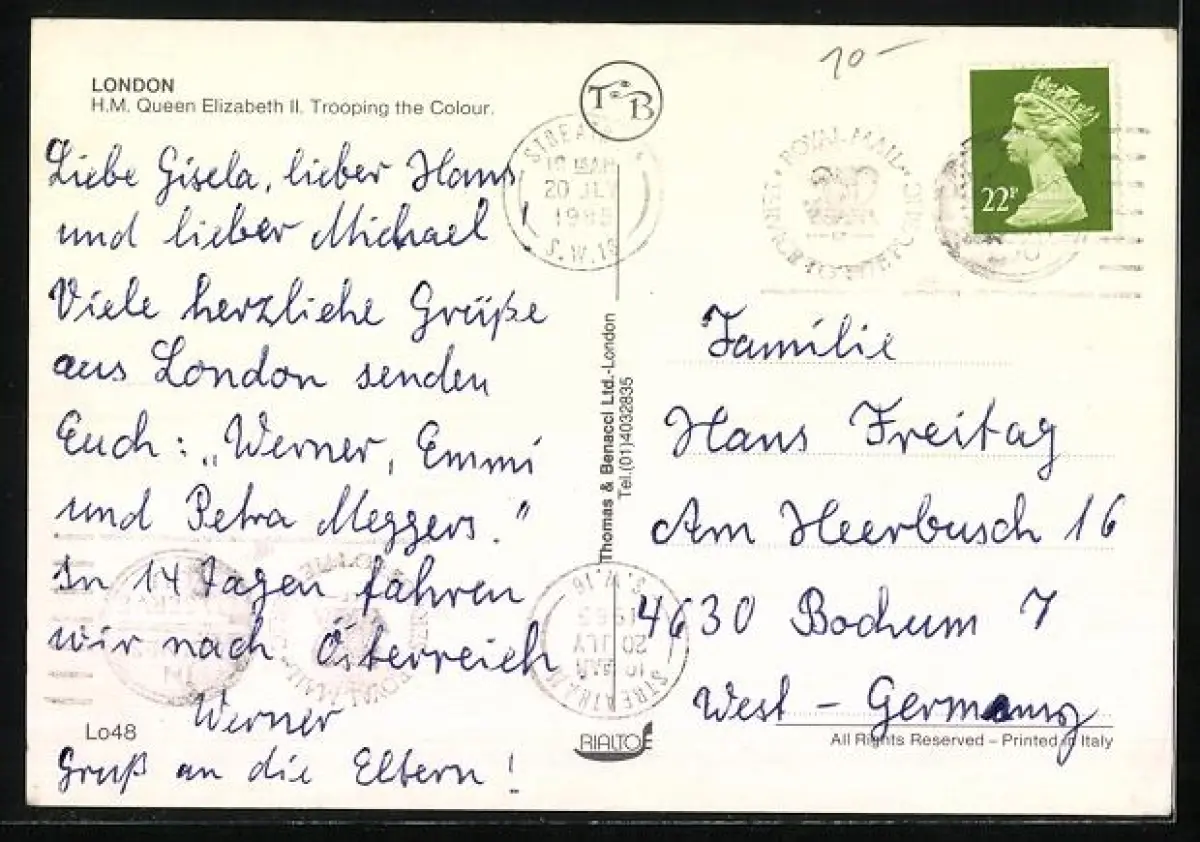 LONDON
H.M. Queen Elizabeth II. Trooping the Colour.
TB
10-
Liebe Gisela, lieber Hans
und lieber Michael !
Viele herzliche Grüße
aus London senden
Euch: „Werner, Emmi
und Petra Meggers."
In 14 Tagen fahren
wir nach Österreich
Werner
Gruß an die Eltern!
Lo48
STREATHAM
20 JLY
1985
S.W.16
ROYAL MAIL
SERVICE TO THE PUBLIC
22P
Thomas & Benacci Ltd.-London
Tel.(01)4032835
Familie
Hans Freitag
Am Heerbusch 16
4630 Bochum 7
West-Germany
STREATHAM
20 JLY
1985
S.W.16
ROYAL MAIL
RIALTO
All Rights Reserved – Printed in Italy